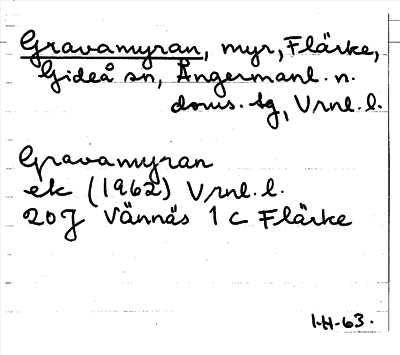 Gravamyran, myr, Flärke,
Gideå sn, Ångermanl. n.
doms. tg, Vrnl. l.
Gravamyran
ek (1962) Vrnl. l.
20J Vännäs 1 c Flärke
1-H-63.